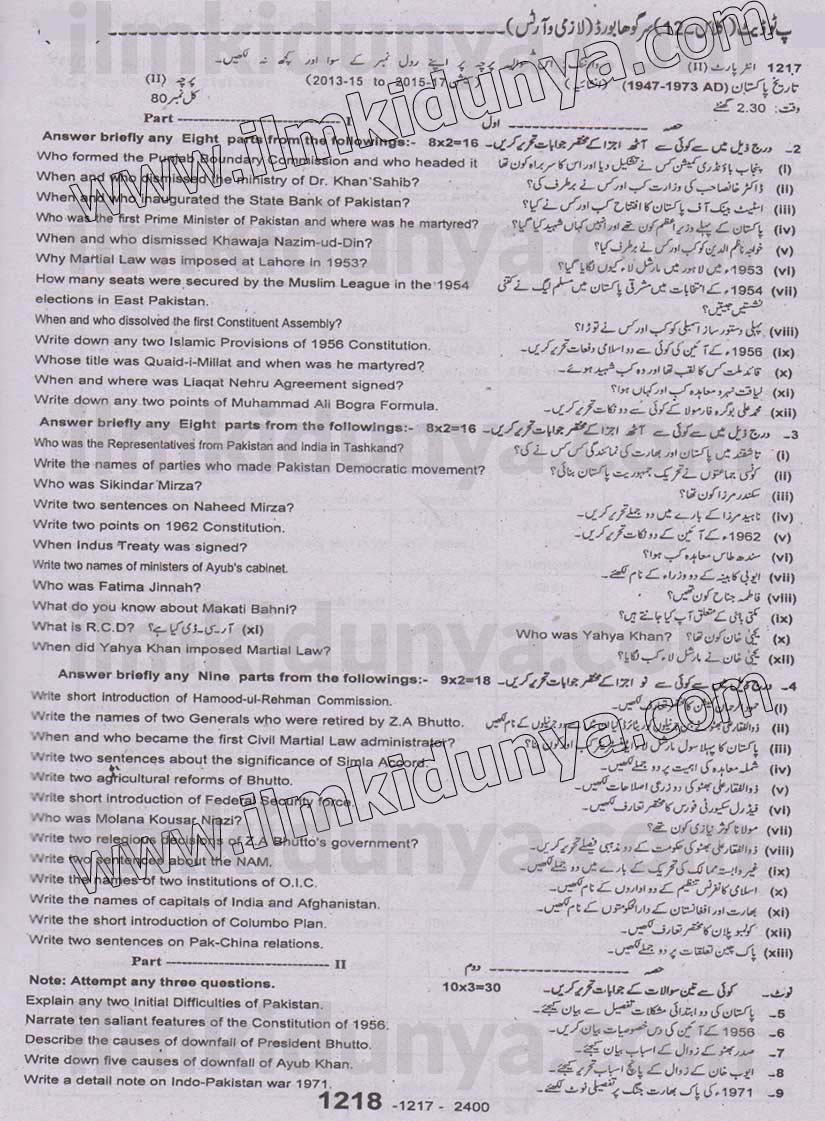 پ ٹوڈیٹ (کلاس ـ 12) سرگودھا بورڈ (لازمی و آرٹس)
1217 انٹر پارٹ (II) پر اپنے رول نمبر کے سوا اور کچھ نہ لکھیں۔
تاریخ پاکستان (1947-1973 AD) (انشائیہ) سیشن (2013-15 to 2015-17) پرچہ (II)
وقت: 2.30 گھنٹے کل نمبر 80
Part ---------------- I حصہ ---------------- اول
Answer briefly any Eight parts from the followings:- 8x2=16 2۔ درج ذیل میں سے کوئی سے آٹھ اجزا کے مختصر جوابات تحریر کریں۔
Who formed the Punjab Boundary Commission and who headed it (i) پنجاب باؤنڈری کمیشن کس نے تشکیل دیا اور اس کا سربراہ کون تھا
When and who dismissed the ministry of Dr. Khan Sahib? (ii) ڈاکٹر خانصاحب کی وزارت کب اور کس نے برطرف کی؟
When and who inaugurated the State Bank of Pakistan? (iii) اسٹیٹ بینک آف پاکستان کا افتتاح کب اور کس نے کیا؟
Who was the first Prime Minister of Pakistan and where was he martyred? (iv) پاکستان کے پہلے وزیر اعظم کون تھے اور انہیں کہاں شہید کیا گیا؟
When and who dismissed Khawaja Nazim-ud-Din? (v) خواجہ ناظم الدین کو کب اور کس نے برطرف کیا؟
Why Martial Law was imposed at Lahore in 1953? (vi) 1953ء میں لاہور میں مارشل لاء کیوں لگایا گیا؟
How many seats were secured by the Muslim League in the 1954 (vii) 1954ء کے انتخابات میں مشرقی پاکستان میں مسلم لیگ نے کتنی
elections in East Pakistan. نشستیں جیتیں؟
When and who dissolved the first Constituent Assembly? (viii) پہلی دستور ساز اسمبلی کو کب اور کس نے توڑا؟
Write down any two Islamic Provisions of 1956 Constitution. (ix) 1956ء کے آئین کی کوئی سے دو اسلامی دفعات تحریر کریں۔
Whose title was Quaid-i-Millat and when was he martyred? (x) قائد ملت کس کا لقب تھا اور وہ کب شہید ہوئے۔
When and where was Liaqat Nehru Agreement signed? (xi) لیاقت نہرو معاہدہ کب اور کہاں ہوا؟
Write down any two points of Muhammad Ali Bogra Formula. (xii) محمد علی بوگرہ فارمولا کے کوئی سے دو نکات تحریر کریں۔
Answer briefly any Eight parts from the followings:- 8x2=16 3۔ درج ذیل میں سے کوئی سے آٹھ اجزا کے مختصر جوابات تحریر کریں۔
Who was the Representatives from Pakistan and India in Tashkand? (i) تاشقند میں پاکستان اور بھارت کی نمائندگی کس کس نے کی؟
Write the names of parties who made Pakistan Democratic movement? (ii) کونسی جماعتوں نے تحریک جمہوریت پاکستان بنائی؟
Who was Sikindar Mirza? (iii) سکندر مرزا کون تھا؟
Write two sentences on Naheed Mirza? (iv) ناہید مرزا کے بارے میں دو جملے تحریر کریں۔
Write two points on 1962 Constitution. (v) 1962ء کے آئین کے دو نکات تحریر کریں۔
When Indus Treaty was signed? (vi) سندھ طاس معاہدہ کب ہوا؟
Write two names of ministers of Ayub's cabinet. (vii) ایوبی کابینہ کے دو وزراء کے نام لکھئے۔
Who was Fatima Jinnah? (viii) فاطمہ جناح کون تھیں؟
What do you know about Makati Bahni? (ix) مکتی باہنی کے متعلق آپ کیا جانتے ہیں؟
What is R.C.D? (xi) آر۔سی۔ڈی کیا ہے؟ Who was Yahya Khan? (x) یحیٰی خان کون تھا؟
When did Yahya Khan imposed Martial Law? (xii) یحیٰی خان نے مارشل لاء کب لگایا؟
Answer briefly any Nine parts from the followings:- 9x2=18 4۔ درج ذیل میں سے کوئی سے نو اجزا کے مختصر جوابات تحریر کریں۔
Write short introduction of Hamood-ul-Rehman Commission. (i) حمود الرحمان کمیشن کا مختصر تعارف لکھیں۔
Write the names of two Generals who were retired by Z.A Bhutto. (ii) ذوالفقار علی بھٹو نے جن جرنیلوں کو ریٹائرڈ کیا ان میں سے دو جرنیلوں کے نام لکھیں
When and who became the first Civil Martial Law administrator? (iii) پاکستان کا پہلا سول مارشل لاء ایڈمنسٹریٹر کب اور کون بنا؟
Write two sentences about the significance of Simla Accord. (iv) شملہ معاہدہ کی اہمیت پر دو جملے لکھیں۔
Write two agricultural reforms of Bhutto. (v) ذوالفقار علی بھٹو کی دو زرعی اصلاحات لکھیں۔
Write short introduction of Federal Security force. (vi) فیڈرل سکیورٹی فورس کا مختصر تعارف لکھیں۔
Who was Molana Kousar Niazi? (vii) مولانا کوثر نیازی کون تھے؟
Write two relegious decisions of Z.A Bhutto's government? (viii) ذوالفقار علی بھٹو کی حکومت کے دو مذہبی فیصلے تحریر کریں۔
Write two sentences about the NAM. (ix) غیر وابستہ ممالک کی تحریک کے بارے میں دو جملے لکھیں۔
Write the names of two institutions of O.I.C. (x) اسلامی کانفرنس تنظیم کے دو اداروں کے نام لکھیں۔
Write the names of capitals of India and Afghanistan. (xi) بھارت اور افغانستان کے دارالحکومتوں کے نام لکھیں۔
Write the short introduction of Columbo Plan. (xii) کولمبو پلان کا مختصر تعارف لکھیں۔
Write two sentences on Pak-China relations. (xiii) پاک چین تعلقات پر دو جملے لکھیں۔
Part ---------------- II حصہ ---------------- دوم
Note: Attempt any three questions. 10x3=30 نوٹ۔ کوئی سے تین سوالات کے جوابات تحریر کریں۔
Explain any two Initial Difficulties of Pakistan. 5۔ پاکستان کی دو ابتدائی مشکلات تفصیل سے بیان کیجئے۔
Narrate ten saliant features of the Constitution of 1956. 6۔ 1956ء کے آئین کی دس خصوصیات بیان کریں۔
Describe the causes of downfall of President Bhutto. 7۔ صدر بھٹو کے زوال کے اسباب بیان کیجئے۔
Write down five causes of downfall of Ayub Khan. 8۔ ایوب خان کے زوال کے پانچ اسباب تحریر کیجئے۔
Write a detail note on Indo-Pakistan war 1971. 9۔ 1971ء کی پاک بھارت جنگ پر تفصیلی نوٹ لکھئے۔
1218 -1217- 2400
www.ilmkidunya.com
www.ilmkidunya.com